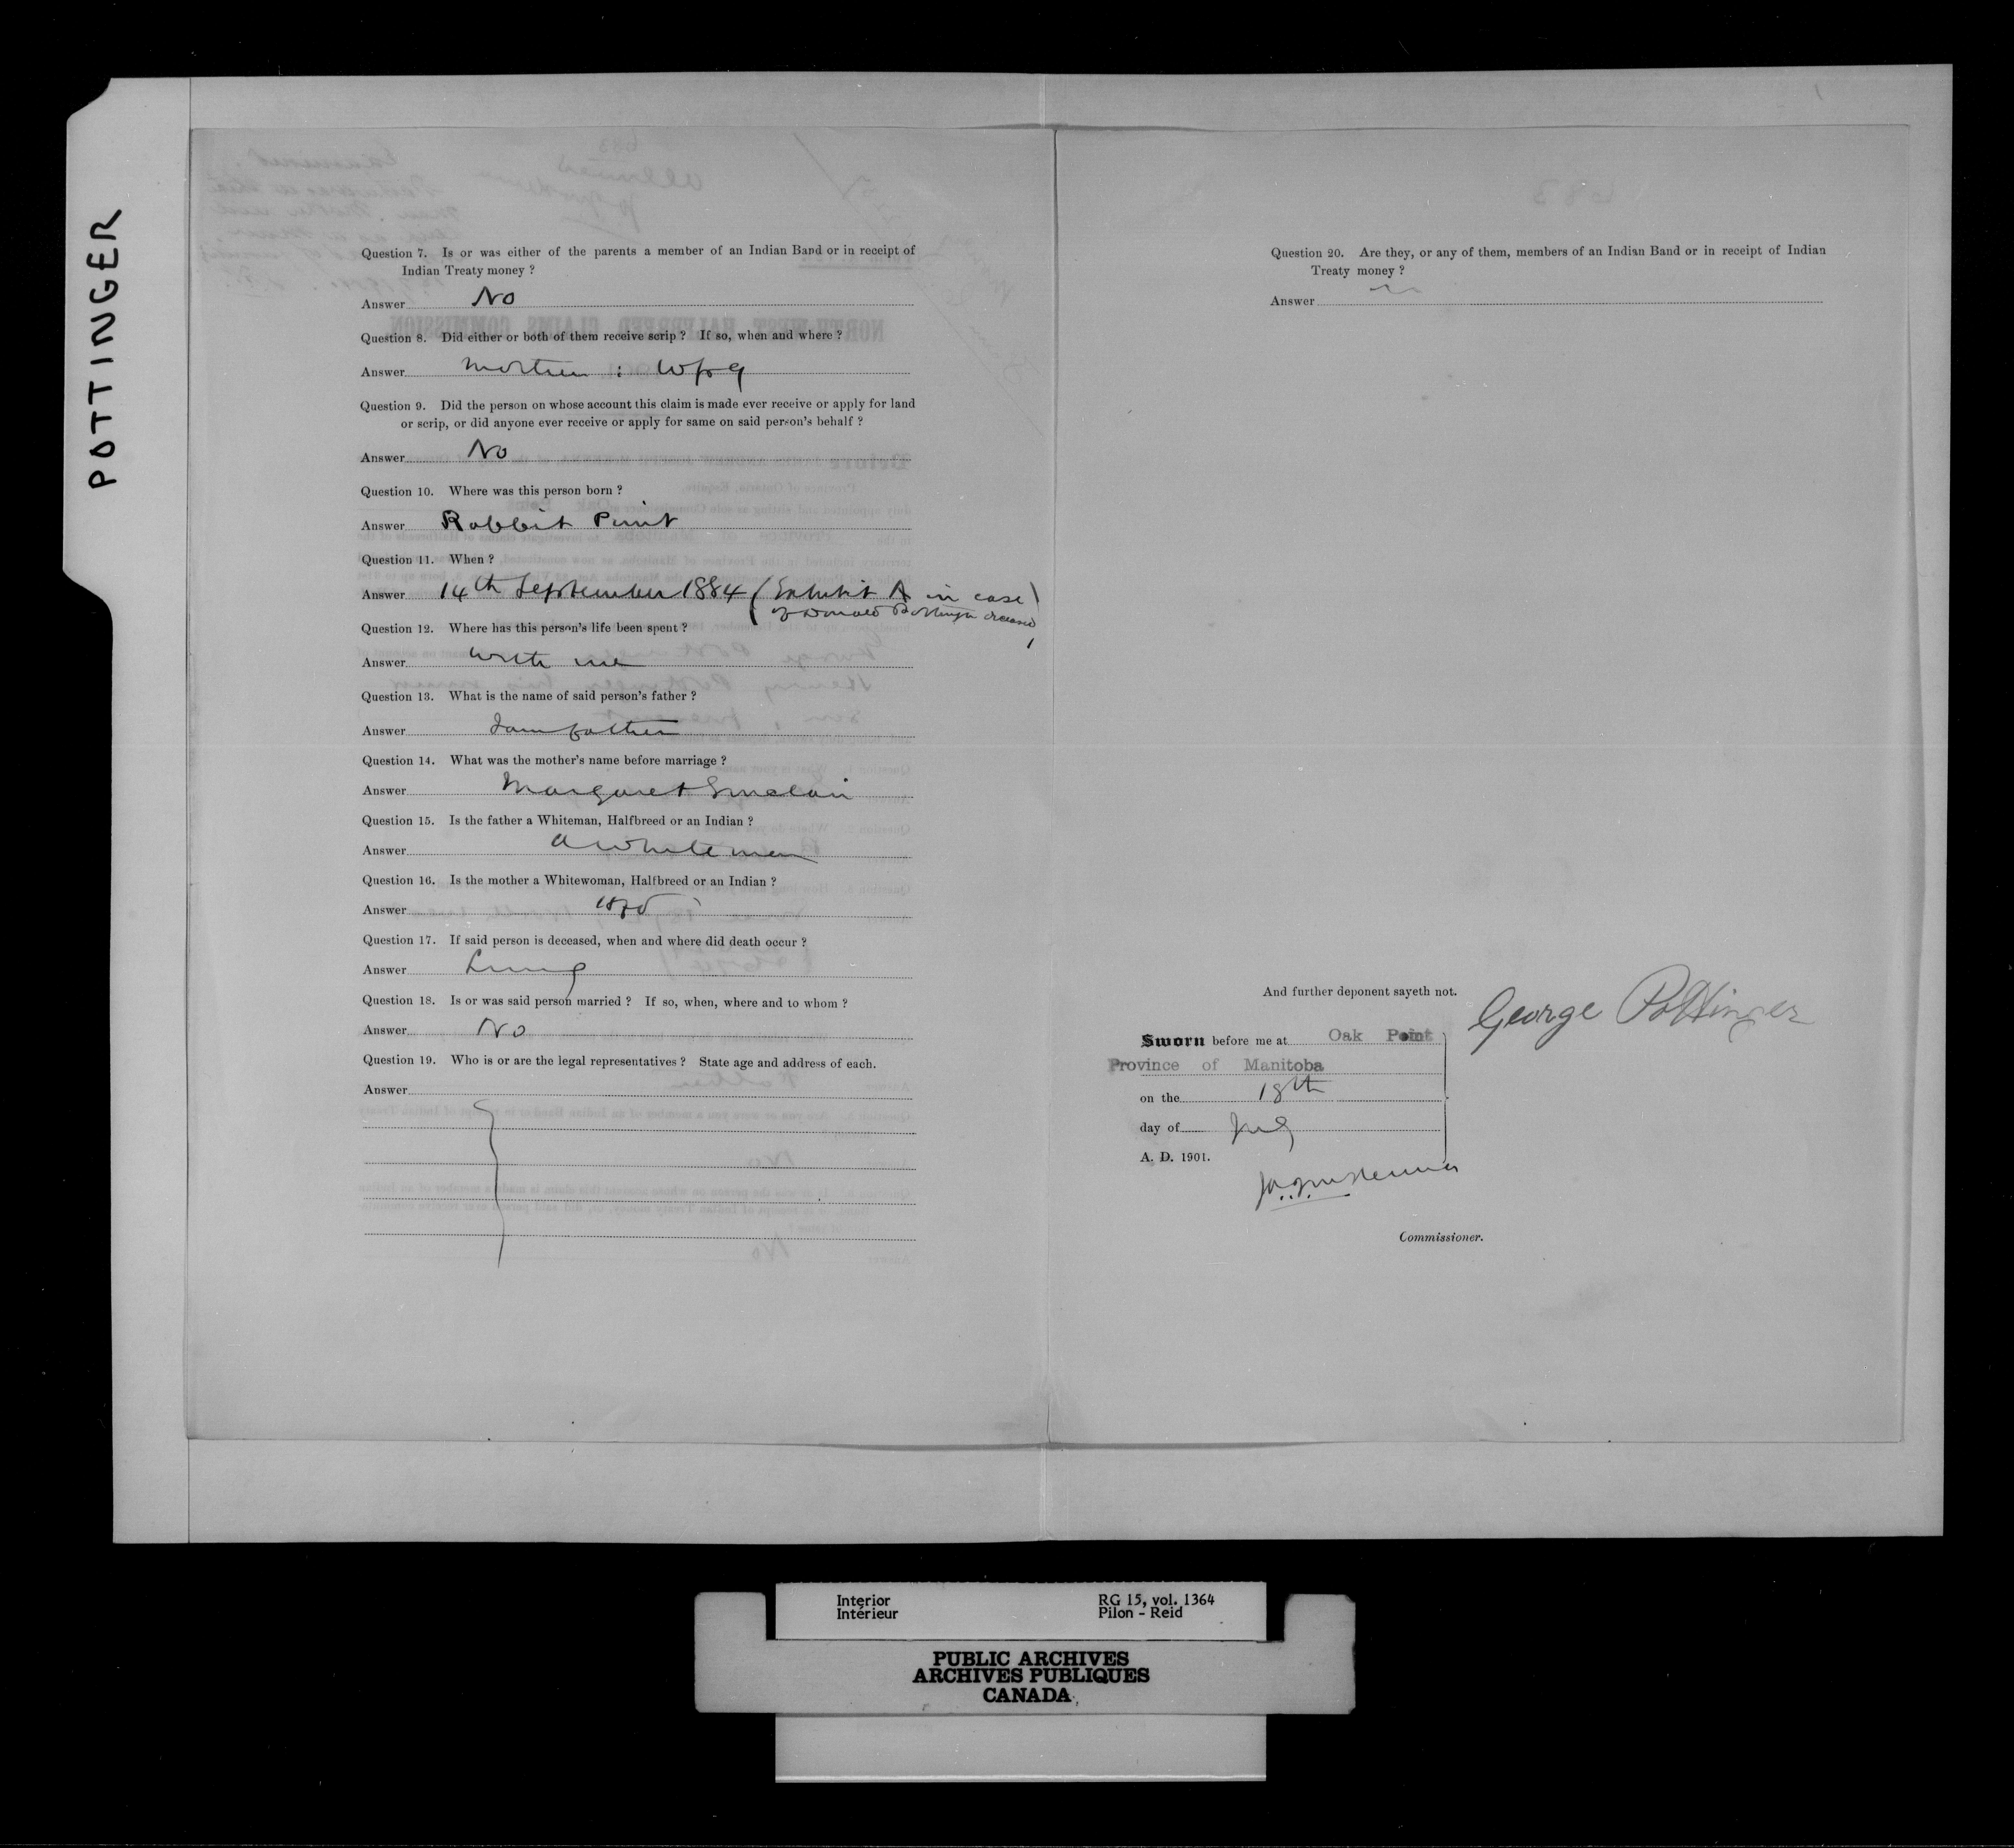 POTTINGER
Question 7. Is or was either of the parents a member of an Indian Band or in receipt of
Indian Treaty money ?
Answer No
Question 8. Did either or both of them receive scrip ? If so, when and where ?
Answer Mother : Wpg
Question 9. Did the person on whose account this claim is made ever receive or apply for land
or scrip, or did anyone ever receive or apply for same on said person's behalf ?
Answer No
Question 10. Where was this person born ?
Answer Rabbit Point
Question 11. When ?
Answer 14th September 1884 (Exhibit A in case
of Donald Pottinger deceased)
Question 12. Where has this person's life been spent ?
Answer with me
Question 13. What is the name of said person's father ?
Answer I am father
Question 14. What was the mother's name before marriage ?
Answer Margaret Sinclair
Question 15. Is the father a Whiteman, Halfbreed or an Indian ?
Answer a whiteman
Question 16. Is the mother a Whitewoman, Halfbreed or an Indian ?
Answer
Question 17. If said person is deceased, when and where did death occur ?
Answer Living
Question 18. Is or was said person married ? If so, when, where and to whom ?
Answer No
Question 19. Who is or are the legal representatives ? State age and address of each.
Answer
683
Question 20. Are they, or any of them, members of an Indian Band or in receipt of Indian
Treaty money ?
Answer
And further deponent sayeth not.
George Pottinger
Sworn before me at Oak Point
Province of Manitoba
on the 18th
day of July
A. D. 1901.
Commissioner.
Interior
Intérieur
RG 15, vol. 1364
Pilon - Reid
PUBLIC ARCHIVES
ARCHIVES PUBLIQUES
CANADA